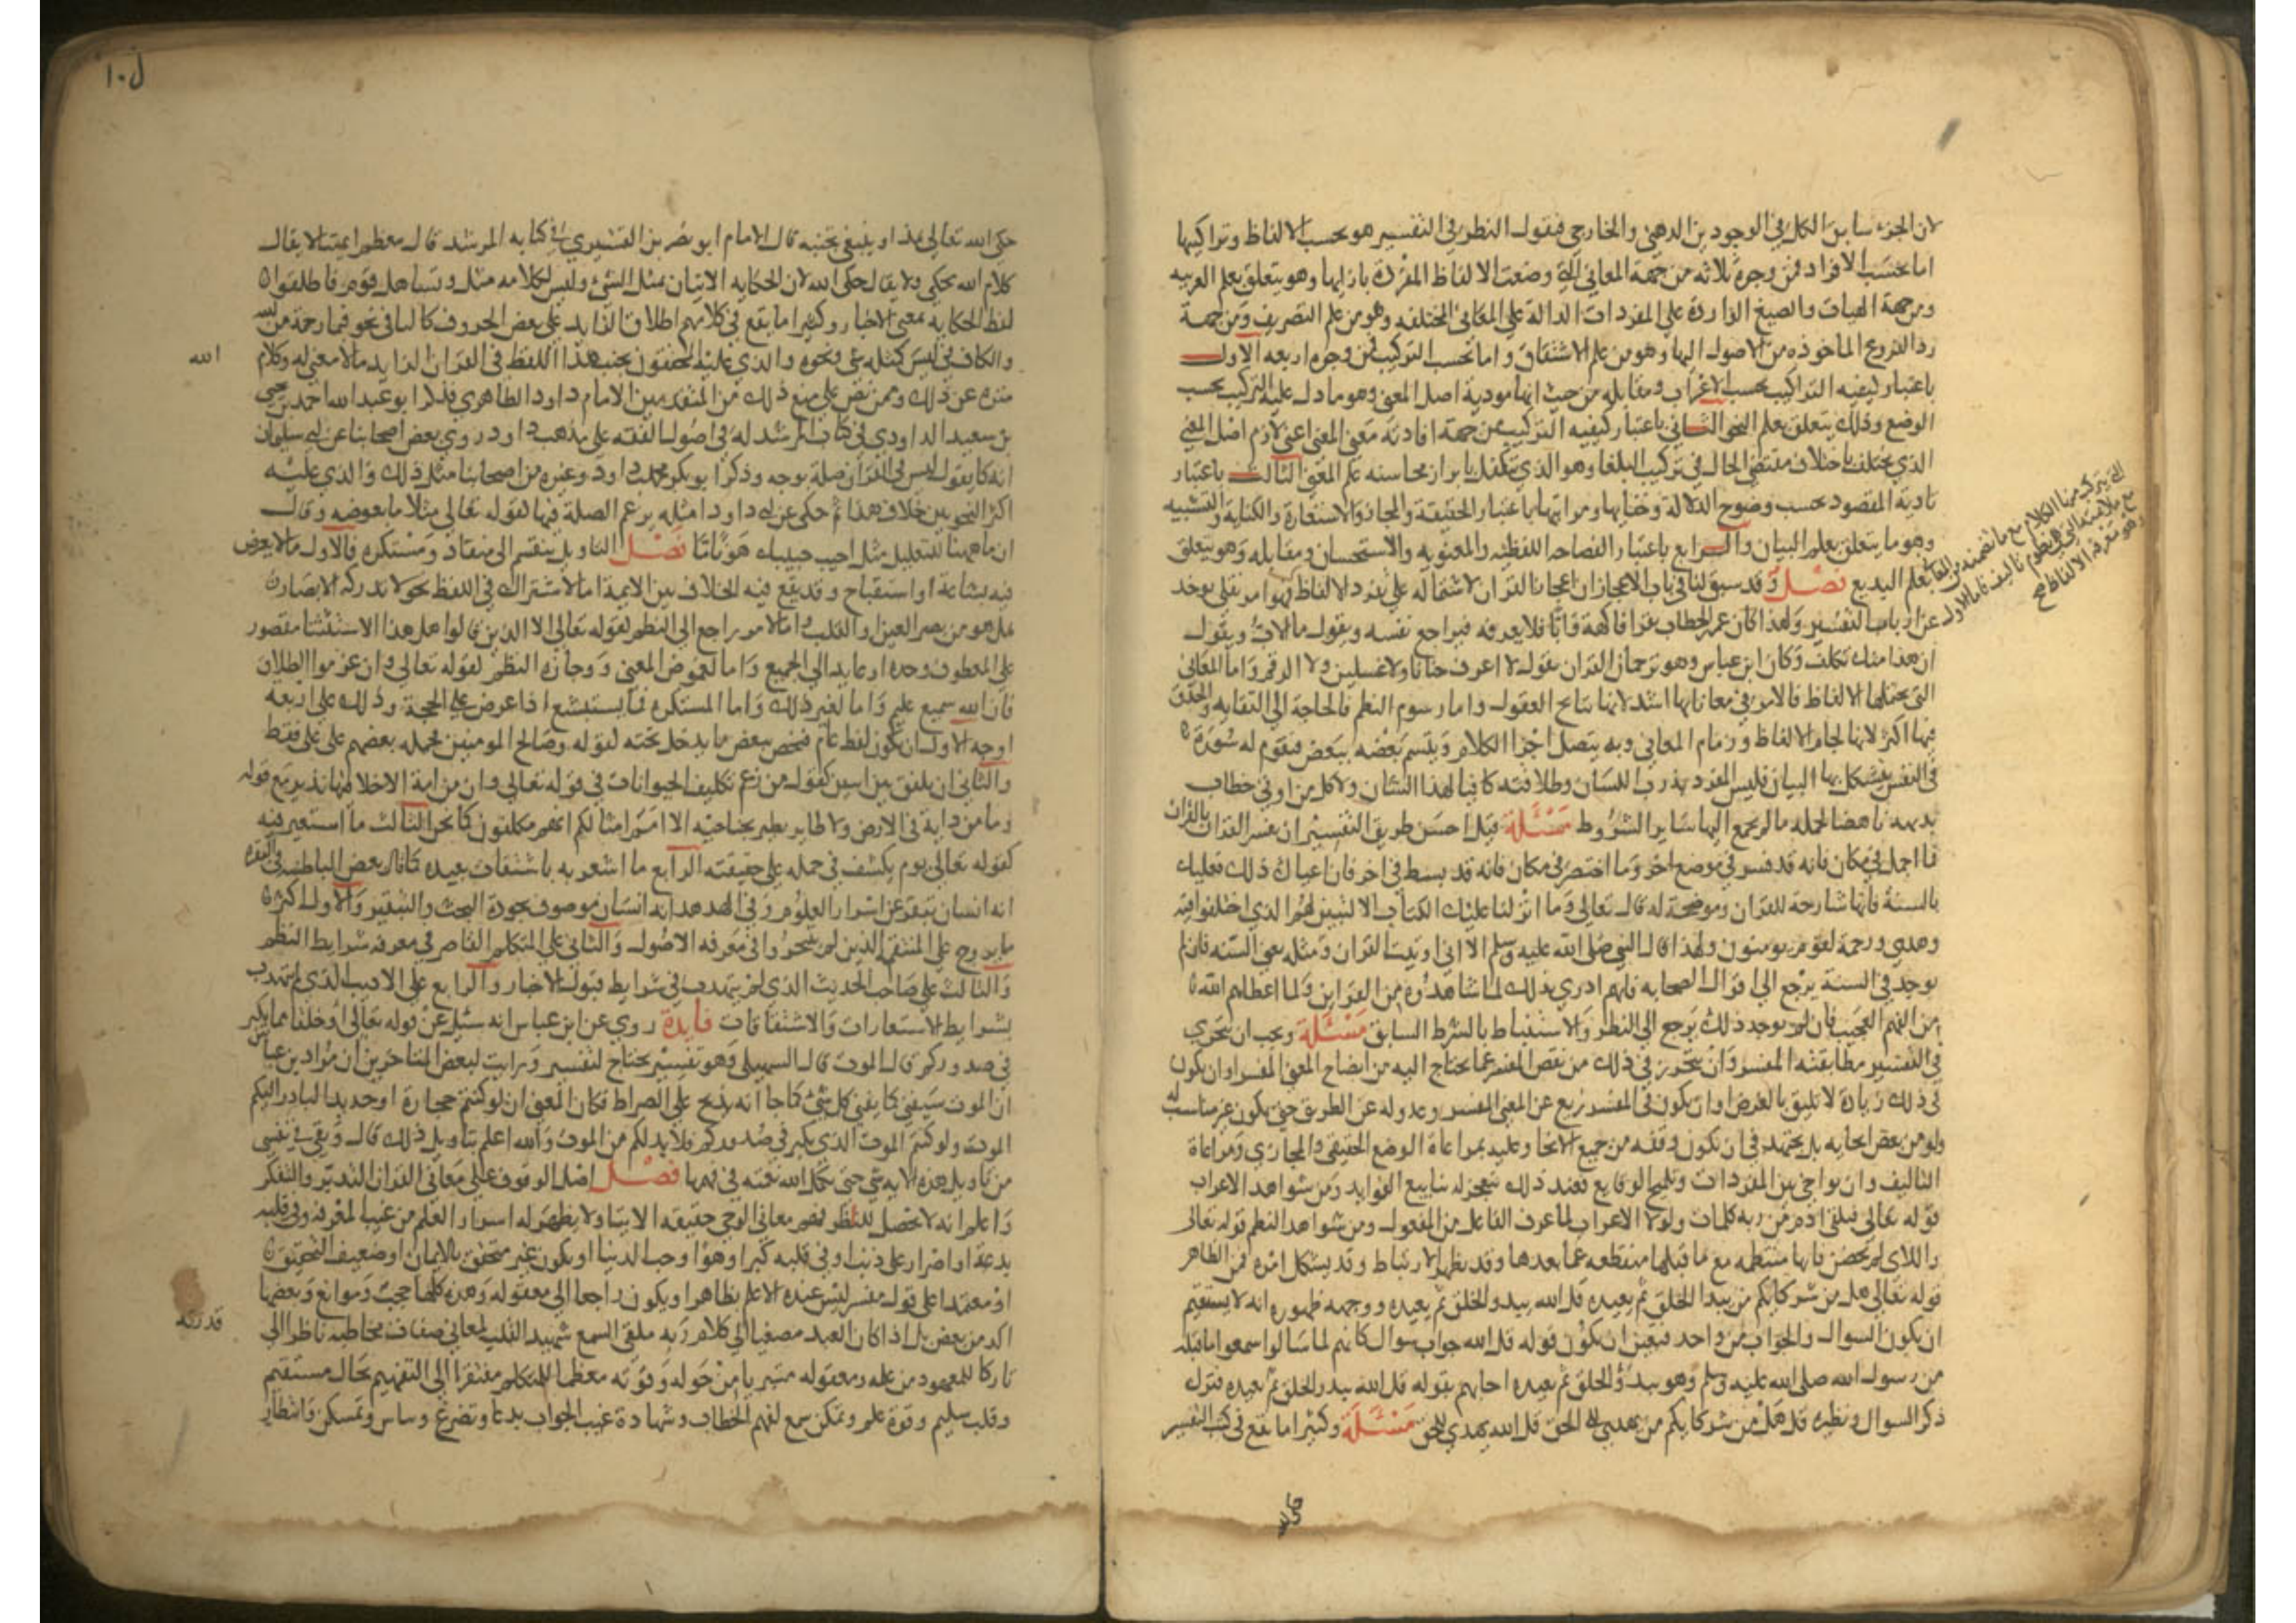 لان الجزء سابق الكل في الوجود من الذهني والخارجي فنقول النظر في التفسير هو بحسب الالفاظ وتراكيبها
اما بحسب الافراد فمن وجوه ثلاثه من جهة المعاني التي وضعت الالفاظ المفردة بازايها وهو يتعلق بعلم العربيه
ومن جهة الهيات والصيغ الواردة علي المفردات الدالة علي المعاني المختلفه وهو من علم التصريف ومن جهة
رد الفروع الماخوذه من الاصول اليها وهو من علم الاشتقاق واما بحسب التركيب فمن وجوه اربعه الاول
باعتبار كيفيه التراكيب بحسب الاعراب ومقابله من حيث انها مودية اصل المعني وهو ما دل عليه التركيب بحسب
الوضع وذلك يتعلق بعلم النحو الثاني باعتبار كيفيه التركيب من جهة افادته معني المعني اعني لازم اصل المعني
الذي يختلف باختلاف مقتضي الحال في تركيب البلغا وهو الذي يتكفل بابراز محاسنه علم المعاني الثالث باعتبار
تادية المقصود بحسب وضوح الدلالة وخفايها ومراتبها باعتبار الحقيقة والمجاز والاستعارة والكناية والتشبيه
وهو ما يتعلق بعلم البيان والرابع باعتبار الفصاحه اللفظيه والمعنويه والاستحسان ومقابله وهو يتعلق
بعلم البديع فصل وقد سبق لنا في باب الاعجاز ان اعجاز القران لاشتماله علي تفرد الالفاظ
التي يتركب منها الكلام مع ما تضمنه من المعاني
مع ملايمته التي هي نظوم تاليفه فاما الاول
وهو معرفة الالفاظ صح
فهو امر نقلي يوخذ
عن ارباب التفسير ولهذا كان عمر بن الخطاب يقرا فاكهة وابا فلا يعرفه فيراجع نفسه ويقول ما الاب ويقول
ان هذا منك تكلف وكان ابن عباس وهو ترجمان القران يقول لا اعرف حنانا ولا غسلين ولا الرقيم واما المعاني
التي تحتملها الالفاظ فالامر في معاناتها اشد لانها نتايج العقول واما رسوم النظم فالحاجة الي الثقافه والحذق
فيها اكثر لانها لجام الالفاظ وزمام المعاني وبه يتصل اجزا الكلام ويتسم بعضه ببعض فتقوم له صورة
في النفس يتشكل بها البيان فليس المفرد بذرب اللسان وطلاقته كافيا لهذا الشان ولا كل من اوتي خطاب
بديهه ناهضا بحمله ما لم يجمع اليها ساير الشروط مسئلة قيل احسن طريق التفسير ان يفسر القران بالقران
فما اجمل في مكان فانه قد فسر في موضع اخر وما اختصر في مكان فانه قد بسط في اخر فان اعياك ذلك فعليك
بالسنة فانها شارحة للقران وموضحة له قال تعالي وما انزلنا عليك الكتاب الا لتبين لهم الذي اختلفوا فيه
وهدي ورحمة لقوم يومنون ولهذا قال النبي صلي الله عليه وسلم الا اني اوتيت القران ومثله يعني السنه فان لم
يوجد في السنة يرجع الي اقوال الصحابه فانهم ادري بذلك لما شاهدوه من القراين ولما اعطاهم الله
من الفهم العجيب فان لم يوجد ذلك يرجع الي النظر والاستنباط بالشرط السابق مسئلة ويجب ان يتحري
في التفسير مطابقته المفسر وان يتحرز في ذلك من نقص المفسر عما يحتاج اليه من ايضاح المعني المفسر او ان يكون
في ذلك زيادة لا تليق بالغرض او ان يكون في المفسر زيغ عن المعني المفسر وعدوله عن الطريق حتي يكون غير مناسب له
ولو من بعض انحايه بل يجتهد في ان يكون وفقه من جميع الانحا وعليه بمراعاة الوضع الحقيقي والمجازي ومراعاة
التاليف وان يواخي بين المفردات وتلميح الوقايع فعند ذلك تتفجر له ينابيع الفوايد ومن شواهد الاعراب
قوله تعالي فتلقي ادم من ربه كلمات ولولا الاعراب لما عرف الفاعل من المفعول ومن شواهد النظم قوله تعالي
واللاي لم يحضن فانها منتظمه مع ما قبلها منقطعه عما بعدها وقد يظهر الارتباط وقد يشكل امره فمن الظاهر
قوله تعالي هل من شركايكم من يبدا الخلق ثم يعيده قل الله يبدو الخلق ثم يعيده ووجهه ظهوره انه لا يستقيم
ان يكون السوال والجواب من واحد فتعين ان يكون قوله قل الله جواب سوال كانهم لما سالوا سمعوا ما قبله
من رسول الله صلي الله عليه وسلم وهو يبدو الخلق ثم يعيده اجابهم بقوله قل الله يبدو الخلق ثم يعيده فترك
ذكر السوال ونظيره قل هل من شركايكم من يهدي الي الحق قل الله يهدي للحق مسئلة وكثيرا ما يقع في كتب التفسير
حكي الله
ل١٠
حكي الله تعالي هذا وينبغي تجنبه قال الامام ابو نصر بن القشيري في كتابه المرشد قال معظم ايمتنا لا يقال
كلام الله يحكي ولا يقال حكي الله لان الحكايه الاتيان بمثل الشي وليس لكلامه مثل وتساهل قوم فاطلقوا
لفظ الحكايه بمعني الاخبار وكثيرا ما يقع في كلامهم اطلاق الزايد علي بعض الحروف كالبا في نحو فبما رحمة من الله
والكاف في ليس كمثله شي ونحوه والذي عليه المحققون تجنب هذا اللفظ في القران اذ الزايد ما لا معني له وكلام
الله
منزه عن ذلك وممن نص علي منع ذلك من المتقدمين الامام داود الظاهري فذكر ابو عبد الله احمد بن يحيي
بن سعيد الداودي في كتاب المرشد له في اصول الفقه علي مذهب داود روي بعض اصحابنا عن ابي سليمان
انه كان يقول ليس في القران صلة بوجه وذكر ابو بكر محمد بن داود وغيره من اصحابنا مثل ذلك والذي عليه
اكثر النحويين خلاف هذا ثم حكي عن ابي داود انه يزعم الصلة فيها كقوله تعالي مثلا ما بعوضه وقال
ان ما ههنا للتعليل مثل احبب حبيبك هونا ما فصل التاويل ينقسم الي منقاد ومستكره فالاول ما لا يعرض
فيه بشاعة او استقباح وقد يقع فيه الخلاف بين الايمة اما لاشتراك في اللفظ نحو لا تدركه الابصار
هل هو من بصر العين او القلب واما لامر راجع الي النظم كقوله تعالي الا الذين تابوا هل هذا الاستثنا مقصور
علي المعطوف وحده او عايد الي الجميع واما لغموض المعني ووجازه النظم كقوله تعالي وان عزموا الطلاق
فان الله سميع عليم واما لغير ذلك واما المستكره فما يستبشع اذا عرض علي الحجة وذلك علي اربعه
اوجه الاول ان يكون لفظ عام فيختص ببعض ما يدخل تحته كقوله وصالح المومنين فحمله بعضهم علي علي فقط
والثاني ان يلفق بين اثنين كقول من زعم تكليف الحيوانات في قوله تعالي وان من امة الا خلا فيها نذير مع قوله
وما من دابة في الارض ولا طاير يطير بجناحيه الا امم امثالكم انهم مكلفون كما نحن الثالث ما استعير فيه
كقوله تعالي يوم يكشف في حمله علي حقيقته الرابع ما اشعر به باشتقاق بعيده كما قال بعض الباطنيه في البقره
انه انسان يبقر عن اسرار العلوم وفي الهدهد انه انسان موصوف بجودة البحث والتنقير والاول اكثر
ما يروج علي المتفقهة الذين لم يتبحروا في معرفه الاصول والثاني علي المتكلم القاصر في معرفه شرايط النظم
والثالث علي صاحب الحديث الذي لم يتهذب في شرايط قبول الاخبار والرابع علي الاديب الذي لم يتهذب
بشرايط الاستعارات والاشتقاقات فايدة روي عن ابن عباس انه سئل عن قوله تعالي او خلقا مما يكبر
في صدوركم قال الموت قال السهيلي وهو تفسير يحتاج لتفسير ورايت لبعض المتاخرين ان مراد ابن عباس
ان الموت سيفني كما يفني كل شي كما جا انه يذبح علي الصراط فكان المعني ان لو كنتم حجارة او حديدا لبادر اليكم
الموت ولو كنتم الموت الذي يكبر في صدوركم فلا بد لكم من الموت والله اعلم بتاويل ذلك قال وبقي في نفسي
من تاويل هذه الايه شي حتي يكمل الله نعمته في فهمها فصل اصل الوقوف علي معاني القران التدبر والتفكر
واعلم انه لا يحصل للناظر فهم معاني الوحي حقيقه الا بتا ولا يظهر له اسرار العلم من غيب المعرفه وفي قلبه
بدعة او اصرار علي ذنب او في قلبه كبر او هوا وحب الدنيا او يكون غير متحقق بالايمان او ضعيف التحقيق
او معتمدا علي قول مفسر ليس عنده الا علم بظاهر او يكون راجعا الي معقوله وهذه كلها حجب وموانع وبعضها
اكد من بعض بل اذا كان العبد مصغيا الي كلام ربه ملقي السمع شهيد القلب لمعاني صفات مخاطبه ناظرا الي
قدرته
تاركا للمعهود من علمه ومعقوله متبريا من حوله وقوته معظما للمتكلم مفتقرا الي التفهيم بحال مستقيم
وقلب سليم وقوة علم وتمكن سمع لفهم الخطاب وشهادة غيب الجواب بدعا وتضرع وساس وتمسكن وانتظار